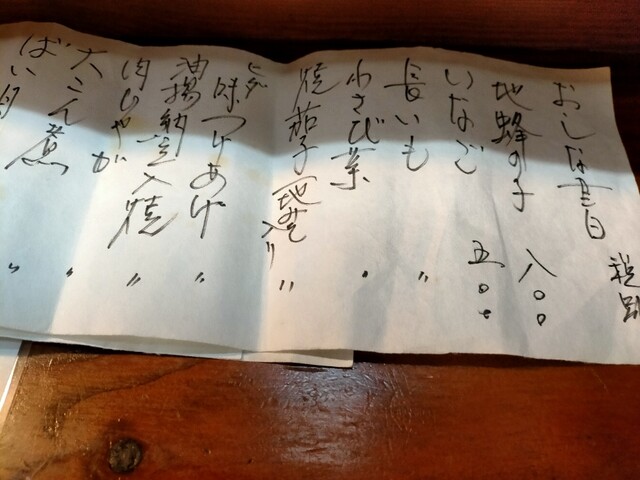 おしな書
税別
地蜂の子 八〇〇
いなご 五〇〇
長いも 〃
わさび葉 〃
焼茄子 地みそ入り 〃
ヒダ味つけあげ 〃
油揚納豆入焼 〃
肉じゃが 〃
大こん煮 〃
ばい貝 〃